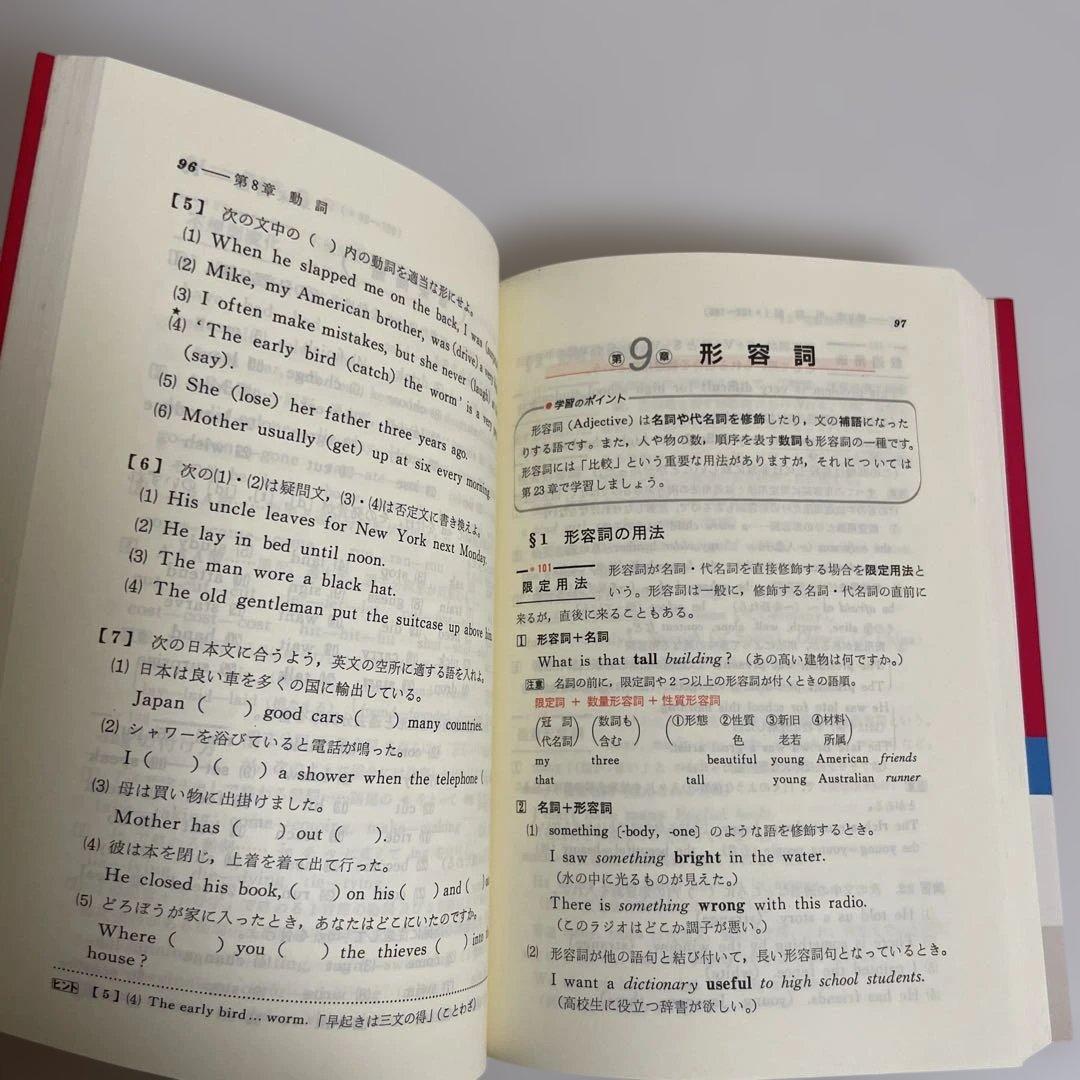 96 — 第8章 動 詞
【5】 次の文中の( )内の動詞を適当な形にせよ。
(1) When he slapped me on the back, I was
(2) Mike, my American brother, was (drive) a very
(3) I often make mistakes, but she never (laugh) at
★
(4) ‘The early bird (catch) the worm’ is a very
(say).
(5) She (lose) her father three years ago.
(6) Mother usually (get) up at six every morning
【6】 次の(1)・(2)は疑問文，(3)・(4)は否定文に書き換えよ。
(1) His uncle leaves for New York next Monday.
(2) He lay in bed until noon.
(3) The man wore a black hat.
(4) The old gentleman put the suitcase up above him
【7】 次の日本文に合うよう，英文の空所に適する語を入れよ。
(1) 日本は良い車を多くの国に輸出している。
Japan ( ) good cars ( ) many countries.
(2) シャワーを浴びていると電話が鳴った。
I ( ) ( ) a shower when the telephone (
(3) 母は買い物に出掛けました。
Mother has ( ) out ( ).
(4) 彼は本を閉じ，上着を着て出て行った。
He closed his book, ( ) on his ( ) and ( )
(5) どろぼうが家に入ったとき，あなたはどこにいたのですか。
Where ( ) you ( ) the thieves ( ) into
house?
ヒント 【5】(4) The early bird … worm.「早起きは三文の得」(ことわざ)
97
第9章 形容詞
●学習のポイント
形容詞 (Adjective) は名詞や代名詞を修飾したり，文の補語になった
りする語です。また，人や物の数，順序を表す数詞も形容詞の一種です。
形容詞には「比較」という重要な用法がありますが，それについては
第23章で学習しましょう。
§1 形容詞の用法
●101
限定用法 形容詞が名詞・代名詞を直接修飾する場合を限定用法と
いう。形容詞は一般に，修飾する名詞・代名詞の直前に
来るが，直後に来ることもある。
1 形容詞＋名詞
What is that tall building? (あの高い建物は何ですか。)
注意 名詞の前に，限定詞や2つ以上の形容詞が付くときの語順。
限定詞 ＋ 数量形容詞 ＋ 性質形容詞
(冠 詞 (数詞も (①形態 ②性質 ③新旧 ④材料
代名詞) 含む) 色 老若 所属)
my three beautiful young American friends
that tall young Australian runner
2 名詞＋形容詞
(1) something〔-body, -one〕のような語を修飾するとき。
I saw something bright in the water.
(水の中に光るものが見えた。)
There is something wrong with this radio.
(このラジオはどこか調子が悪い。)
(2) 形容詞が他の語句と結び付いて，長い形容詞句となっているとき。
I want a dictionary useful to high school students.
(高校生に役立つ辞書が欲しい。)